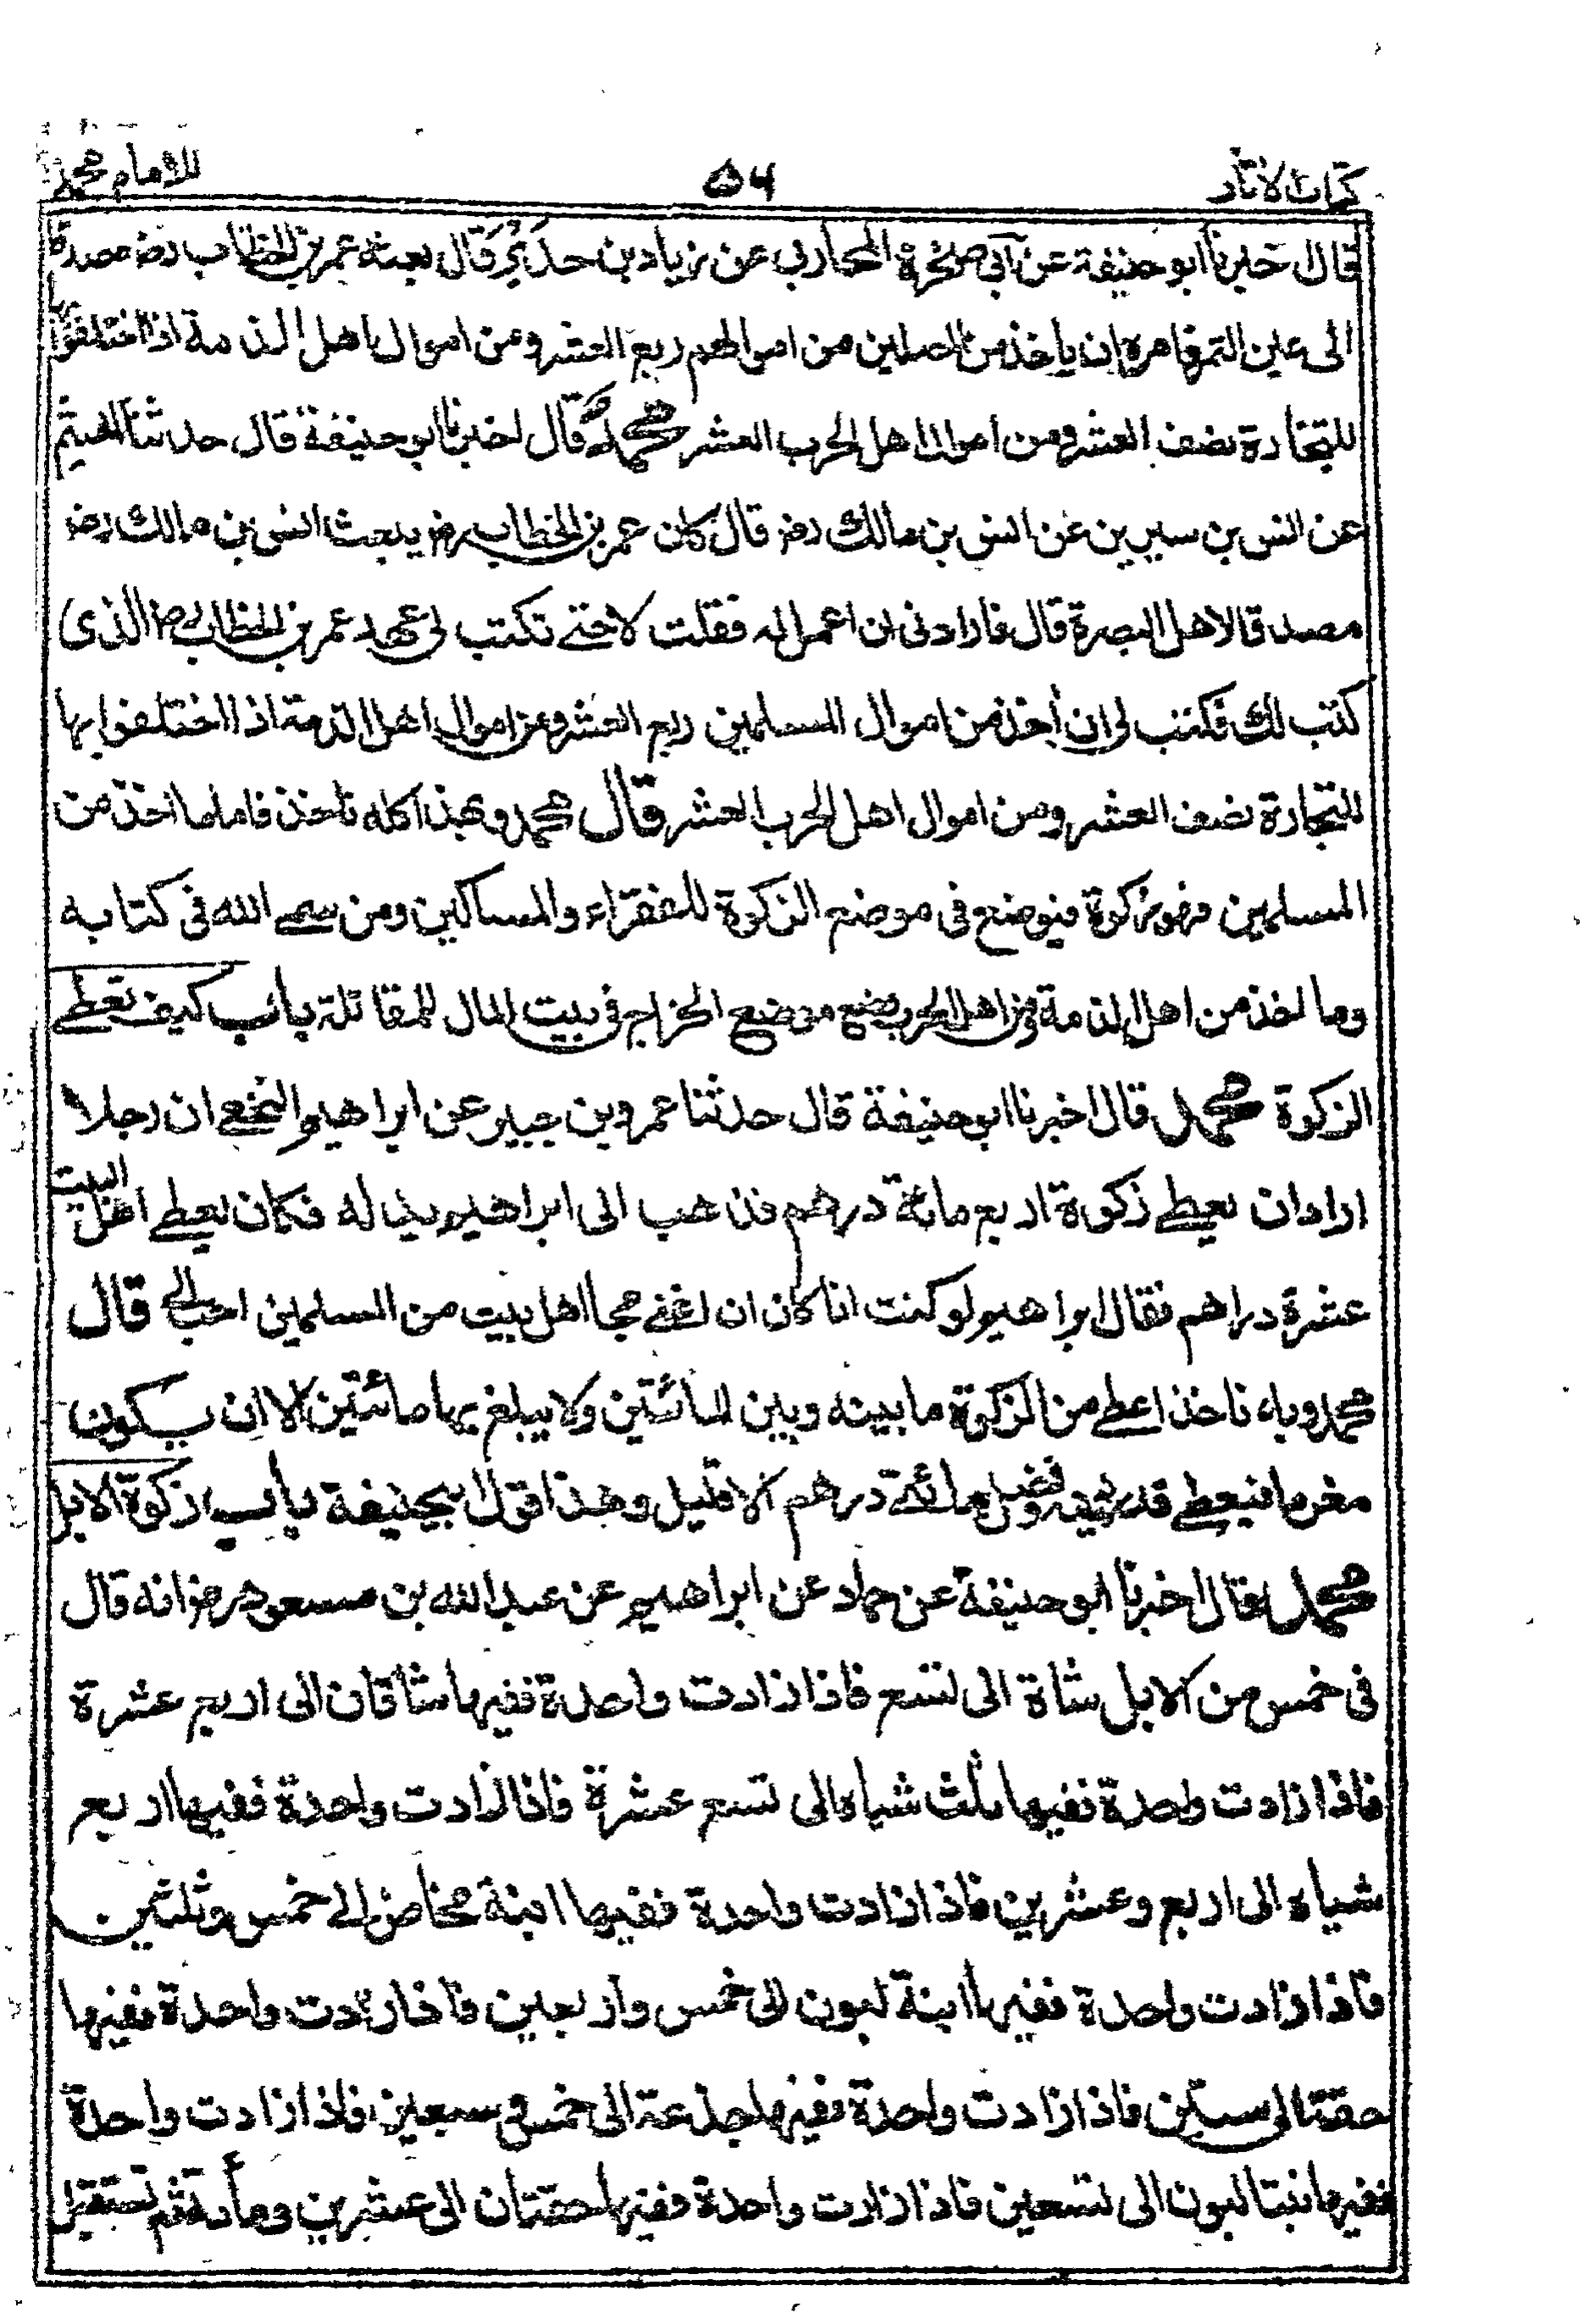 كتاب الاثار ۵۶ للامام محمد
قال اخبرنا ابو حنيفة عن ابى صخرة المحاربى عن زياد بن حدير قال بعثه عمر بن الخطاب رضـ مصدقا
الى عين التمر فامره ان ياخذ من المسلمين من اموالهم ربع العشر ومن اموال اهل الذمة اذا اختلفوا بها
للتجارة نصف العشر ومن اموال اهل الحرب العشر محمد قال اخبرنا ابو حنيفة قال حدثنا الهيثم
عن انس بن سيرين عن انس بن مالك رضـ قال كان عمر بن الخطاب رضـ يبعث انس بن مالك رضـ
مصدقا لاهل البصرة قال فارادنى ان اعمل له فقلت لا حتے تكتب لى عهد عمر بن الخطاب رضـ الذى
كتب لك فكتب لى ان اخذ من اموال المسلمين ربع العشر ومن اموال اهل الذمة اذا اختلفوا بها
للتجارة نصف العشر ومن اموال اهل الحرب العشر قال محمد وبهذا كله ناخذ فاما ما اخذ من
المسلمين فهو زكوة فيوضع فى موضع الزكوة للفقراء والمساكين ومن سمے الله فى كتابه
وما اخذ من اهل الذمة ومن اهل الحرب يضع موضع الخراج فى بيت المال للمقاتلة باب كيف تعطے
الزكوة محمد قال اخبرنا ابو حنيفة قال حدثنا عمرو بن جبير عن ابراهيم النخعے ان رجلا
اراد ان يعطے زكوة اربع مائة درهم فذهب الى ابراهيم يساله فكان يعطے اهل البيت
عشرة دراهم فقال ابراهيم لو كنت انا كان ان اغنے بها اهل بيت من المسلمين احب الے قال
محمد وبه ناخذ اعطے من الزكوة ما بينه وبين المائتين ولا يبلغ بها مائتين الا ان يكون
مغرما فيعطے قدر دينه وفضل مائتے درهم الا قليل وهذا قول ابيحنيفة باب زكوة الابل
محمد قال اخبرنا ابو حنيفة عن حماد عن ابراهيم عن عبد الله بن مسعود رضـ انه قال
فى خمس من الابل شاة الى تسع فاذا زادت واحدة ففيها شاتان الى اربع عشرة
فاذا زادت واحدة ففيها ثلث شياه الى تسع عشرة فاذا زادت واحدة ففيها اربع
شياه الى اربع وعشرين فاذا زادت واحدة ففيها ابنة مخاض الے خمس وثلثين
فاذا زادت واحدة ففيها ابنة لبون الى خمس واربعين فاذا زادت واحدة ففيها
حقة الى ستين فاذا زادت واحدة ففيها جذعة الى خمس وسبعين فاذا زادت واحدة
ففيها بنتا لبون الى تسعين فاذا زادت واحدة ففيها حقتان الى عشرين ومأئة ثم تستقبل